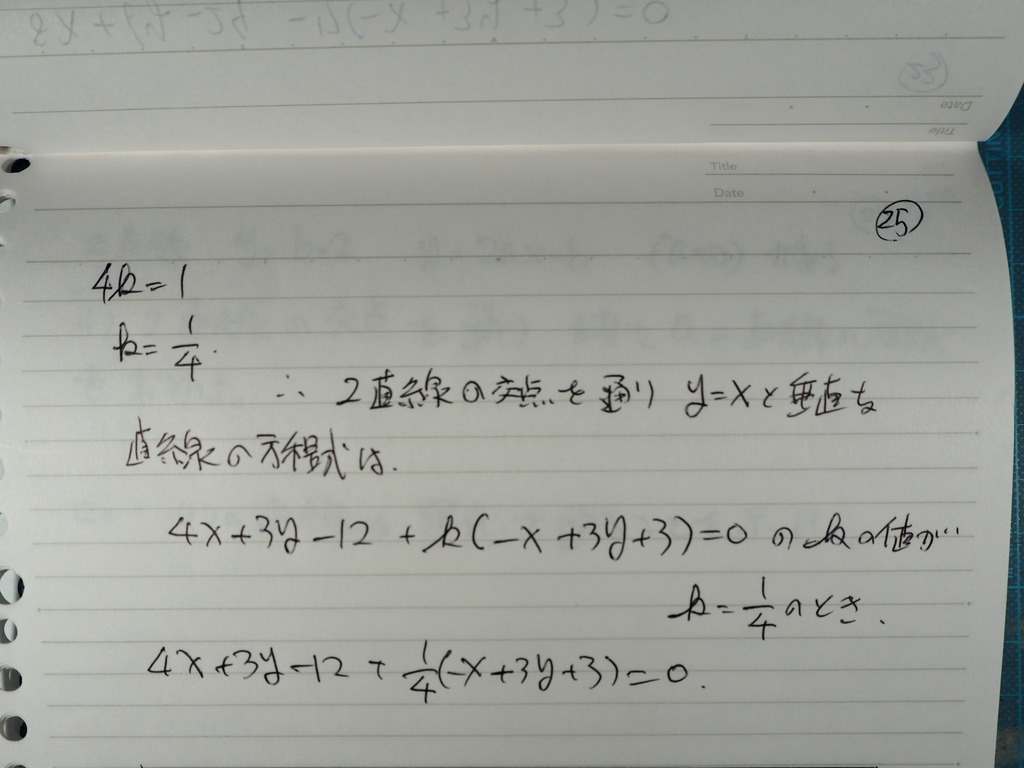 Title
Date
25
4k=1
k=1/4.
∴ 2直線の交点を通り y=xと垂直な
直線の方程式は.
4x+3y-12+k(-x+3y+3)=0 のkの値が…
k=1/4のとき.
4x+3y-12+1/4(-x+3y+3)=0.